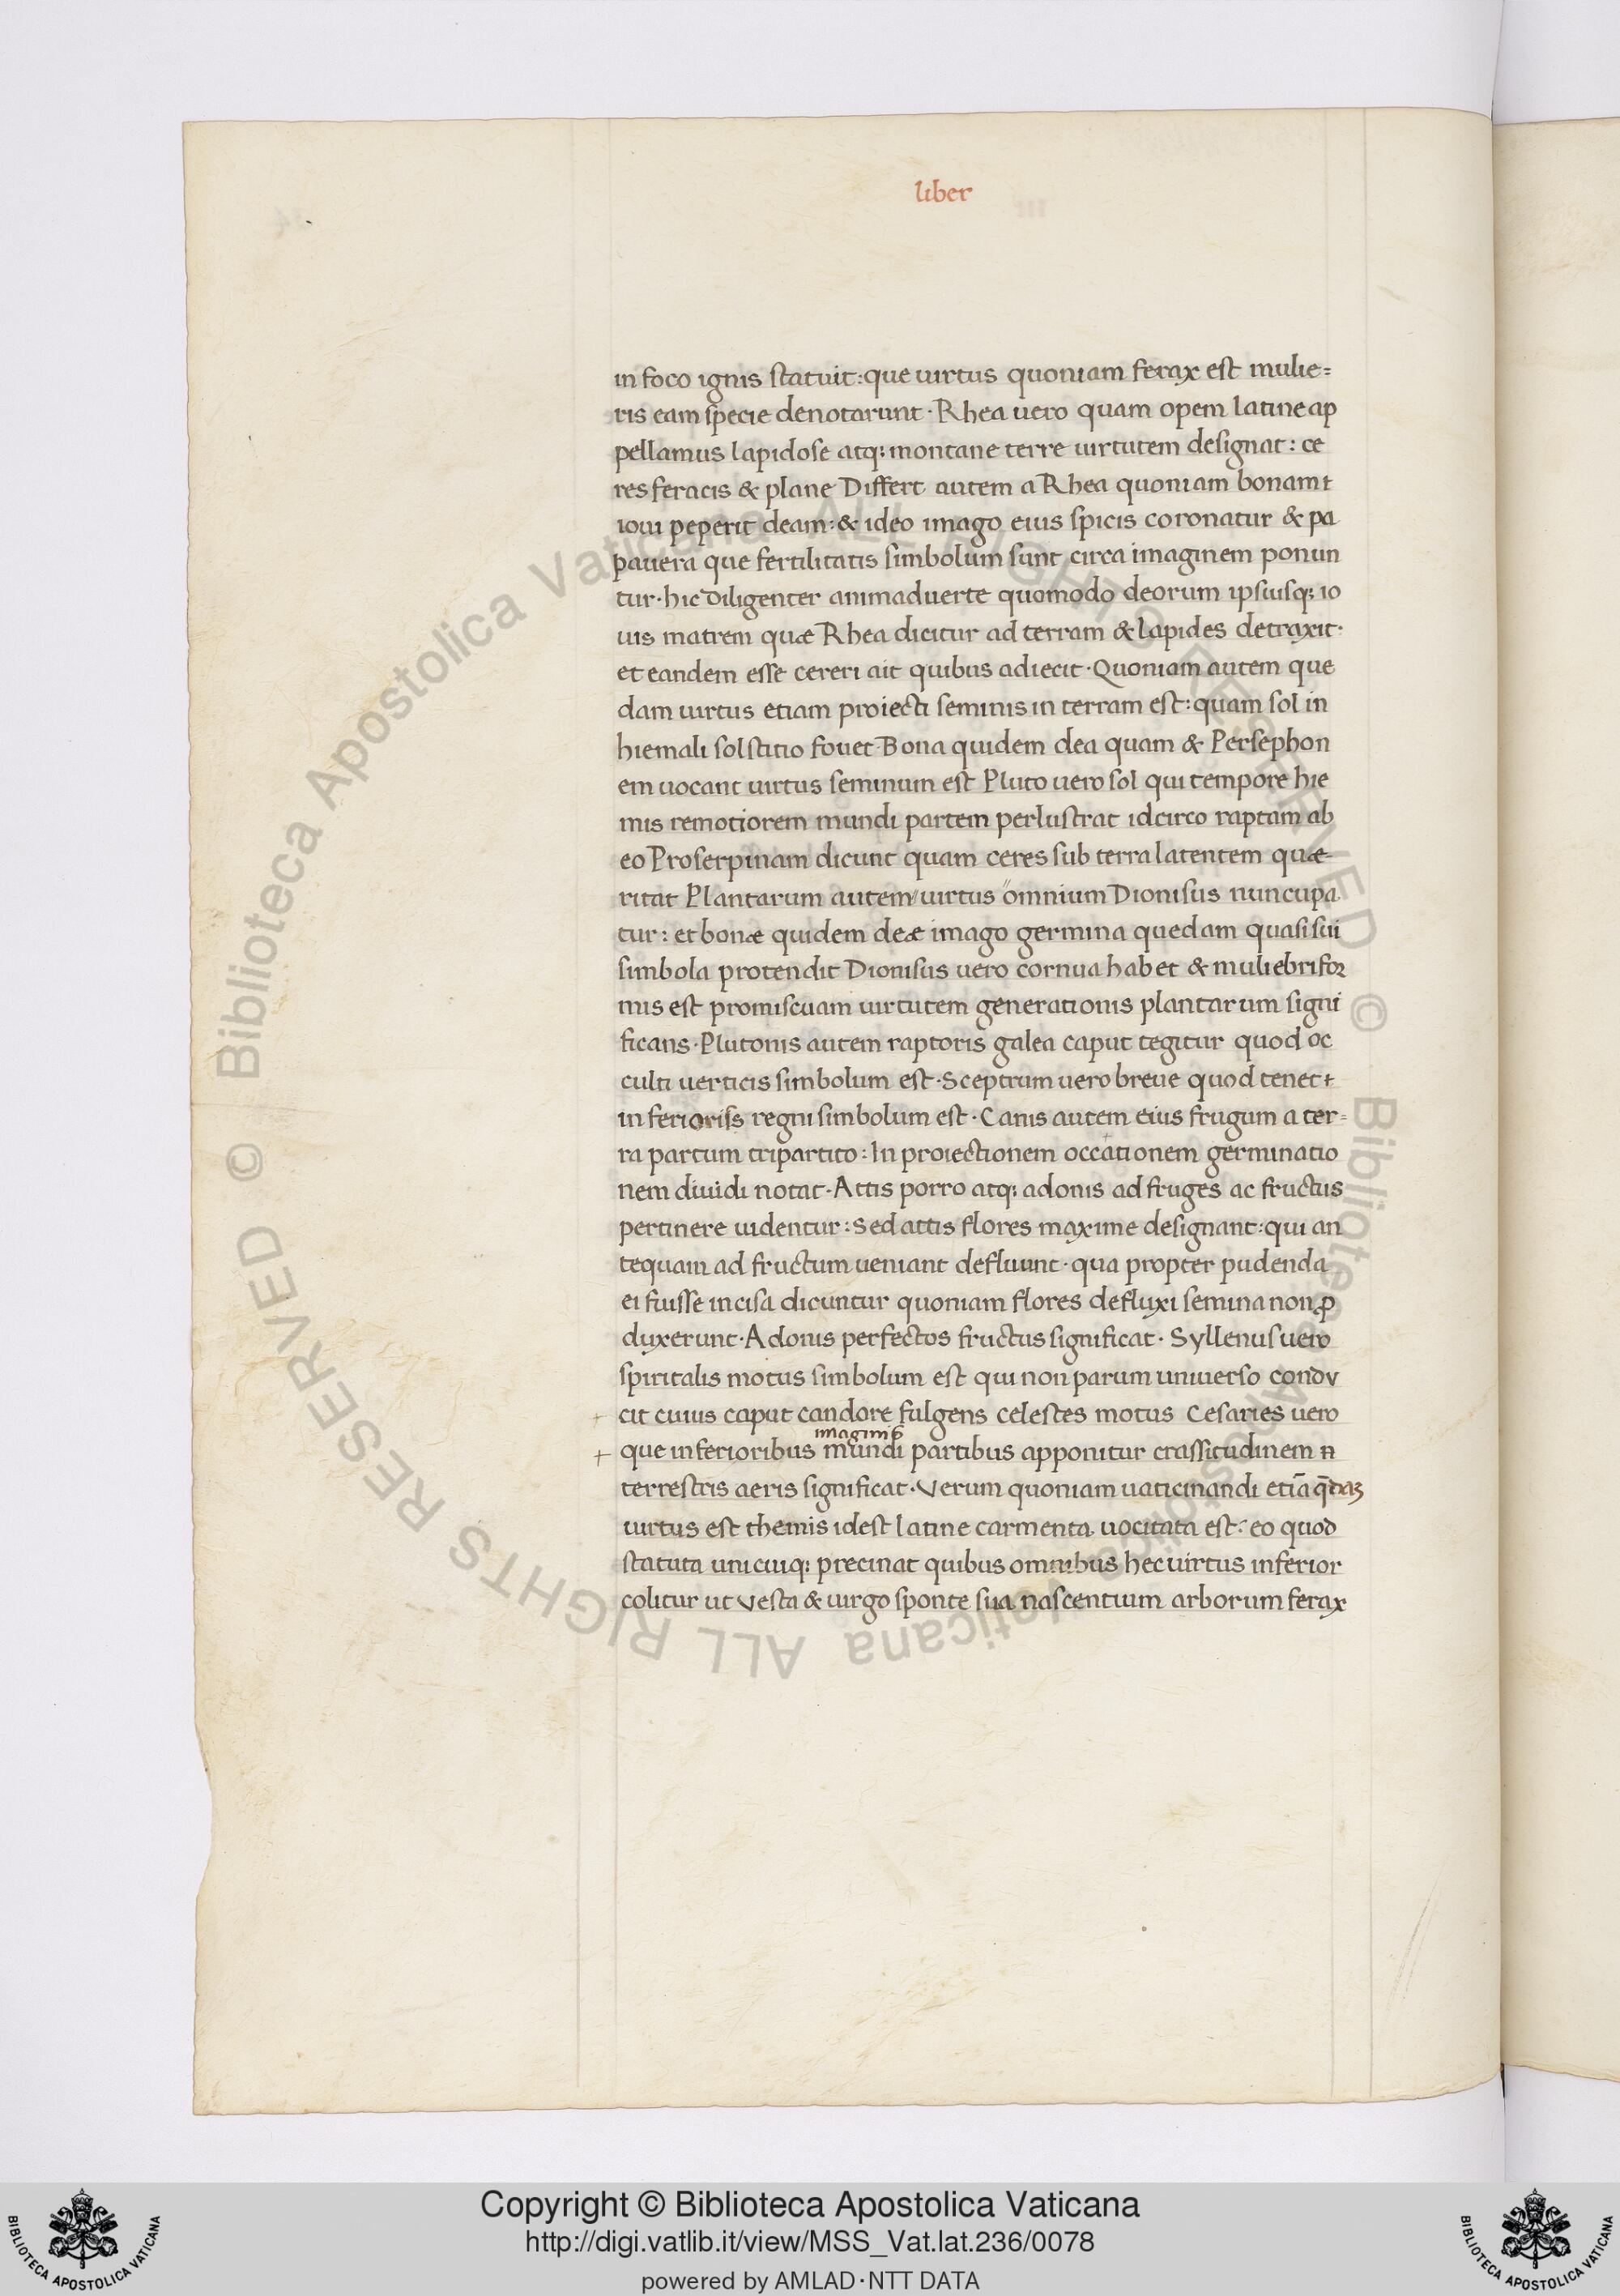 liber
in foco ignis statuit: que uirtus quoniam ferax est mulie=
ris eam specie denotarunt · Rhea uero quam opem latine ap
pellamus lapidose atq; montane terre uirtutem designat: ce
res feracis & plane Differt autem a Rhea quoniam bonam
ioui peperit deam: & ideo imago eius spicis coronatur & pa
pauera que fertilitatis simbolum sunt circa imaginem ponun
tur · hic diligenter animaduerte quomodo deorum ipsiusq; io
uis matrem quæ Rhea dicitur ad terram & lapides detraxit ·
et eandem esse cereri ait quibus adiecit · Quoniam autem que
dam uirtus etiam proiecti seminis in terram est: quam sol in
hiemali solstitio fouet · Bona quidem dea quam & Persephon
em uocant uirtus seminum est Pluto uero sol qui tempore hie
mis remotiorem mundi partem perlustrat idcirco raptam ab
eo Proserpinam dicunt quam ceres sub terra latentem quæ-
ritat Plantarum autem uirtus omnium Dionisus nuncupa
tur: et bonæ quidem deæ imago germina quedam quasi sui
simbola protendit Dionisus uero cornua habet & muliebri for
mis est promiscuam uirtutem generationis plantarum signi
ficans · Plutonis autem raptoris galea caput tegitur quod oc
culti uerticis simbolum est · Sceptrum uero breue quod tenet
inferioriss regni simbolum est · Canis autem eius frugum a ter=
ra partum tripartito: In proiectionem occationem germinatio
nem diuidi notat · Attis porro atq; adonis ad fruges ac fructus
pertinere uidentur: Sed attis flores maxime designant: qui an
tequam ad fructum ueniant defluunt · qua propter pudenda
ei fuisse incisa dicuntur quoniam flores defluxi semina non ꝓ
duxerunt · Adonis perfectos fructus significat · Syllenus uero
spiritalis motus simbolum est qui non parum uniuerso condu
cit cuius caput candore fulgens celestes motus Cesaries uero
imaginis
+ que inferioribus mundi partibus apponitur crassitudinem
terrestris aeris significat · Verum quoniam uaticinandi etiā q̄daȝ
uirtus est themis idest latine carmenta uocitata est: eo quod
statuta unicuiq; precinat quibus omnibus hec uirtus inferior
colitur ut Vesta & uirgo sponte sua nascentium arborum ferax
Copyright © Biblioteca Apostolica Vaticana
http://digi.vatlib.it/view/MSS_Vat.lat.236/0078
powered by AMLAD·NTT DATA
BIBLIOTECA APOSTOLICA VATICANA
BIBLIOTECA APOSTOLICA VATICANA
© Biblioteca Apostolica Vaticana ALL RIGHTS RESERVED © Biblioteca Apostolica Vaticana ALL RIGHTS RESERVED